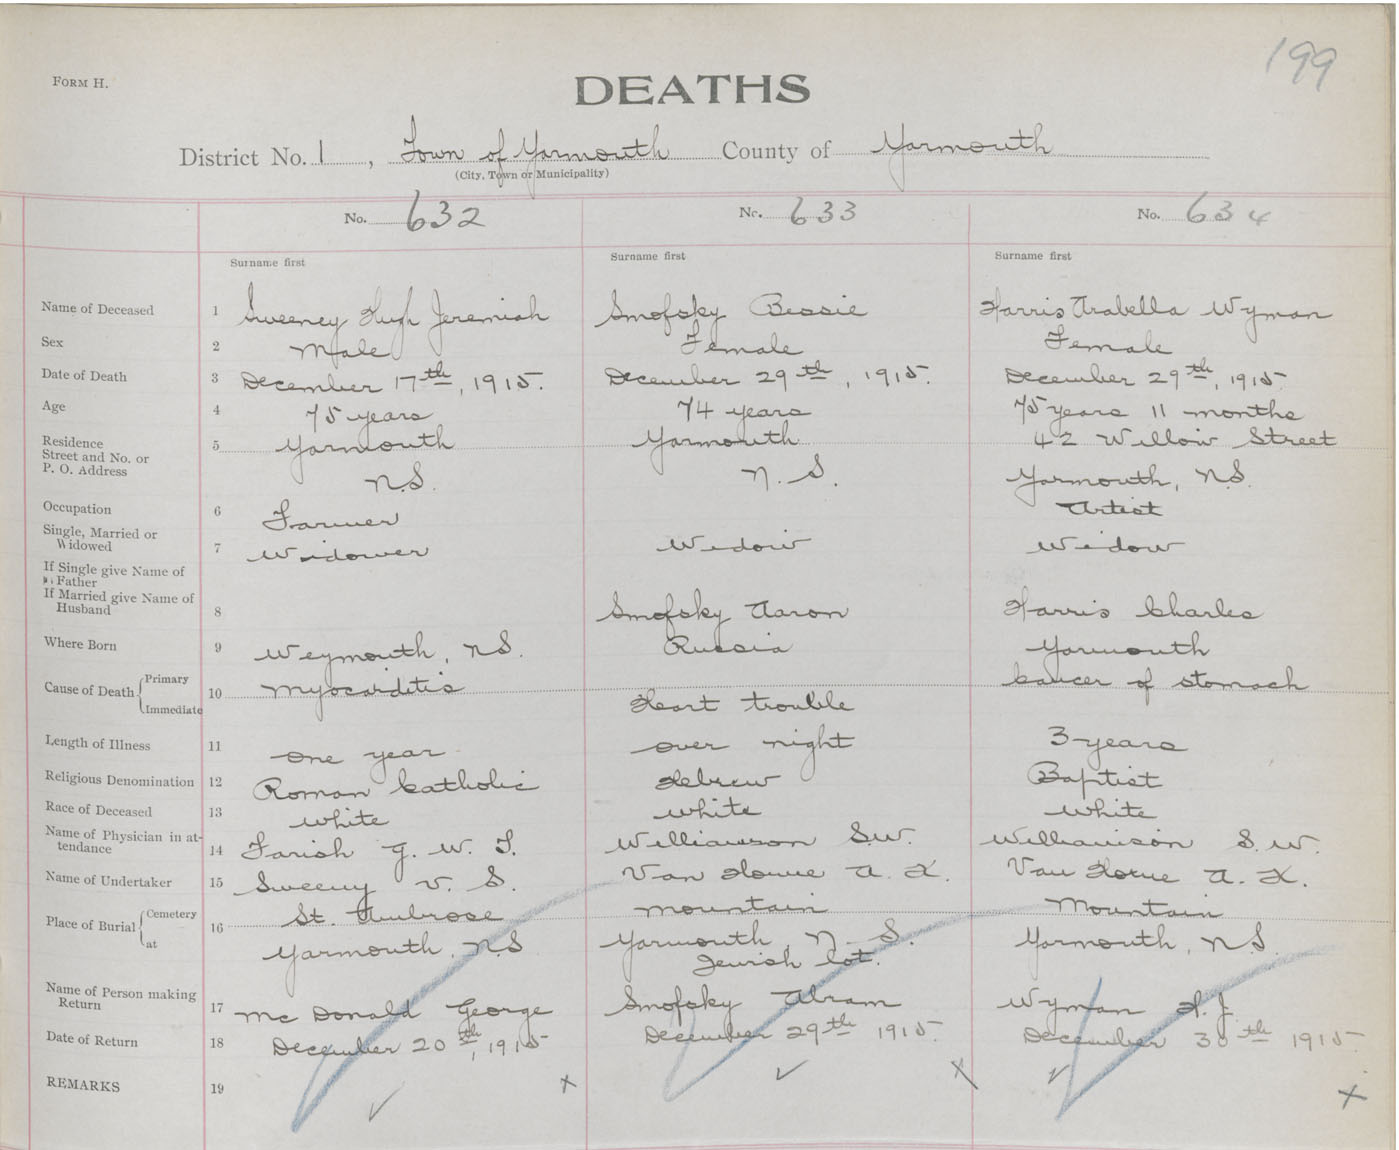 199
FORM H.
DEATHS
District No. 1, Town of Yarmouth County of Yarmouth
(City, Town or Municipality)
No. 632 No. 633 No. 634
Surname first Surname first Surname first
Name of Deceased 1 Sweeney Hugh Jeremiah Smofsky Bessie Harris Arabella Wyman
Sex 2 Male Female Female
Date of Death 3 December 17th, 1915. December 29th, 1915. December 29th, 1915.
Age 4 75 years 74 years 75 years 11 months
Residence Street and No. or P. O. Address 5 Yarmouth Yarmouth 42 Willow Street
N.S. N. S. Yarmouth, N.S.
Occupation 6 Farmer Artist
Single, Married or Widowed 7 Widower Widow Widow
If Single give Name of Father
If Married give Name of Husband 8 Smofsky Aaron Harris Charles
Where Born 9 Weymouth, N.S. Russia Yarmouth
Cause of Death Primary Immediate 10 Myocarditis Heart trouble Cancer of stomach
Length of Illness 11 one year over night 3 years
Religious Denomination 12 Roman Catholic Hebrew Baptist
Race of Deceased 13 white white white
Name of Physician in attendance 14 Farish G. W. T. Williamson S.W. Williamson S.W.
Name of Undertaker 15 Sweeny V. S. Van Horne A. K. Van Horne A. K.
Place of Burial Cemetery at 16 St. Ambrose Mountain Mountain
Yarmouth, N.S Yarmouth, N. S. Yarmouth, N.S.
Jewish Lot.
Name of Person making Return 17 Mc Donald George Smofsky Abram Wyman H. J.
Date of Return 18 December 20th, 1915 December 29th 1915. December 30th 1915.
REMARKS 19